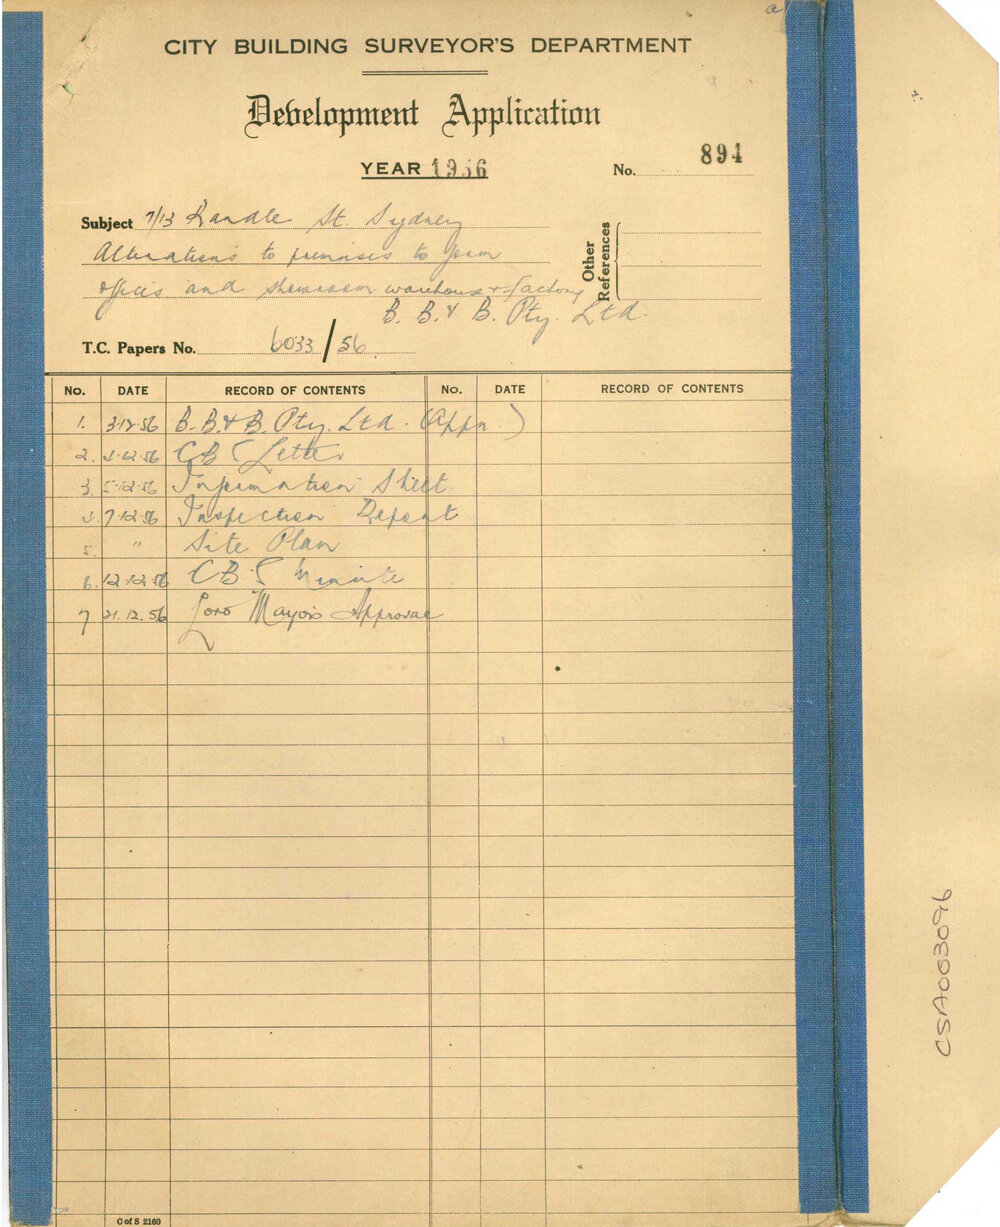 CITY BUILDING SURVEYOR'S DEPARTMENT
Development Application
YEAR 1956
No. 894
Subject 7/13 Randle St. Sydney
Alterations to premises to form
offices and showroom warehouse & factory
B. B. & B. Pty. Ltd.
Other References
T.C. Papers No. 6033/56
No. DATE RECORD OF CONTENTS No. DATE RECORD OF CONTENTS
1. 3.12.56 B. B. & B. Pty. Ltd. (Appn.)
2. 5.12.56 CBS Letter
3. 5.12.56 Information Sheet
4. 7.12.56 Inspection Report
5. " Site Plan
6. 12.12.56 CBS minute
7 21.12.56 Lord Mayor's Approval
C of S 2160
CSA003096